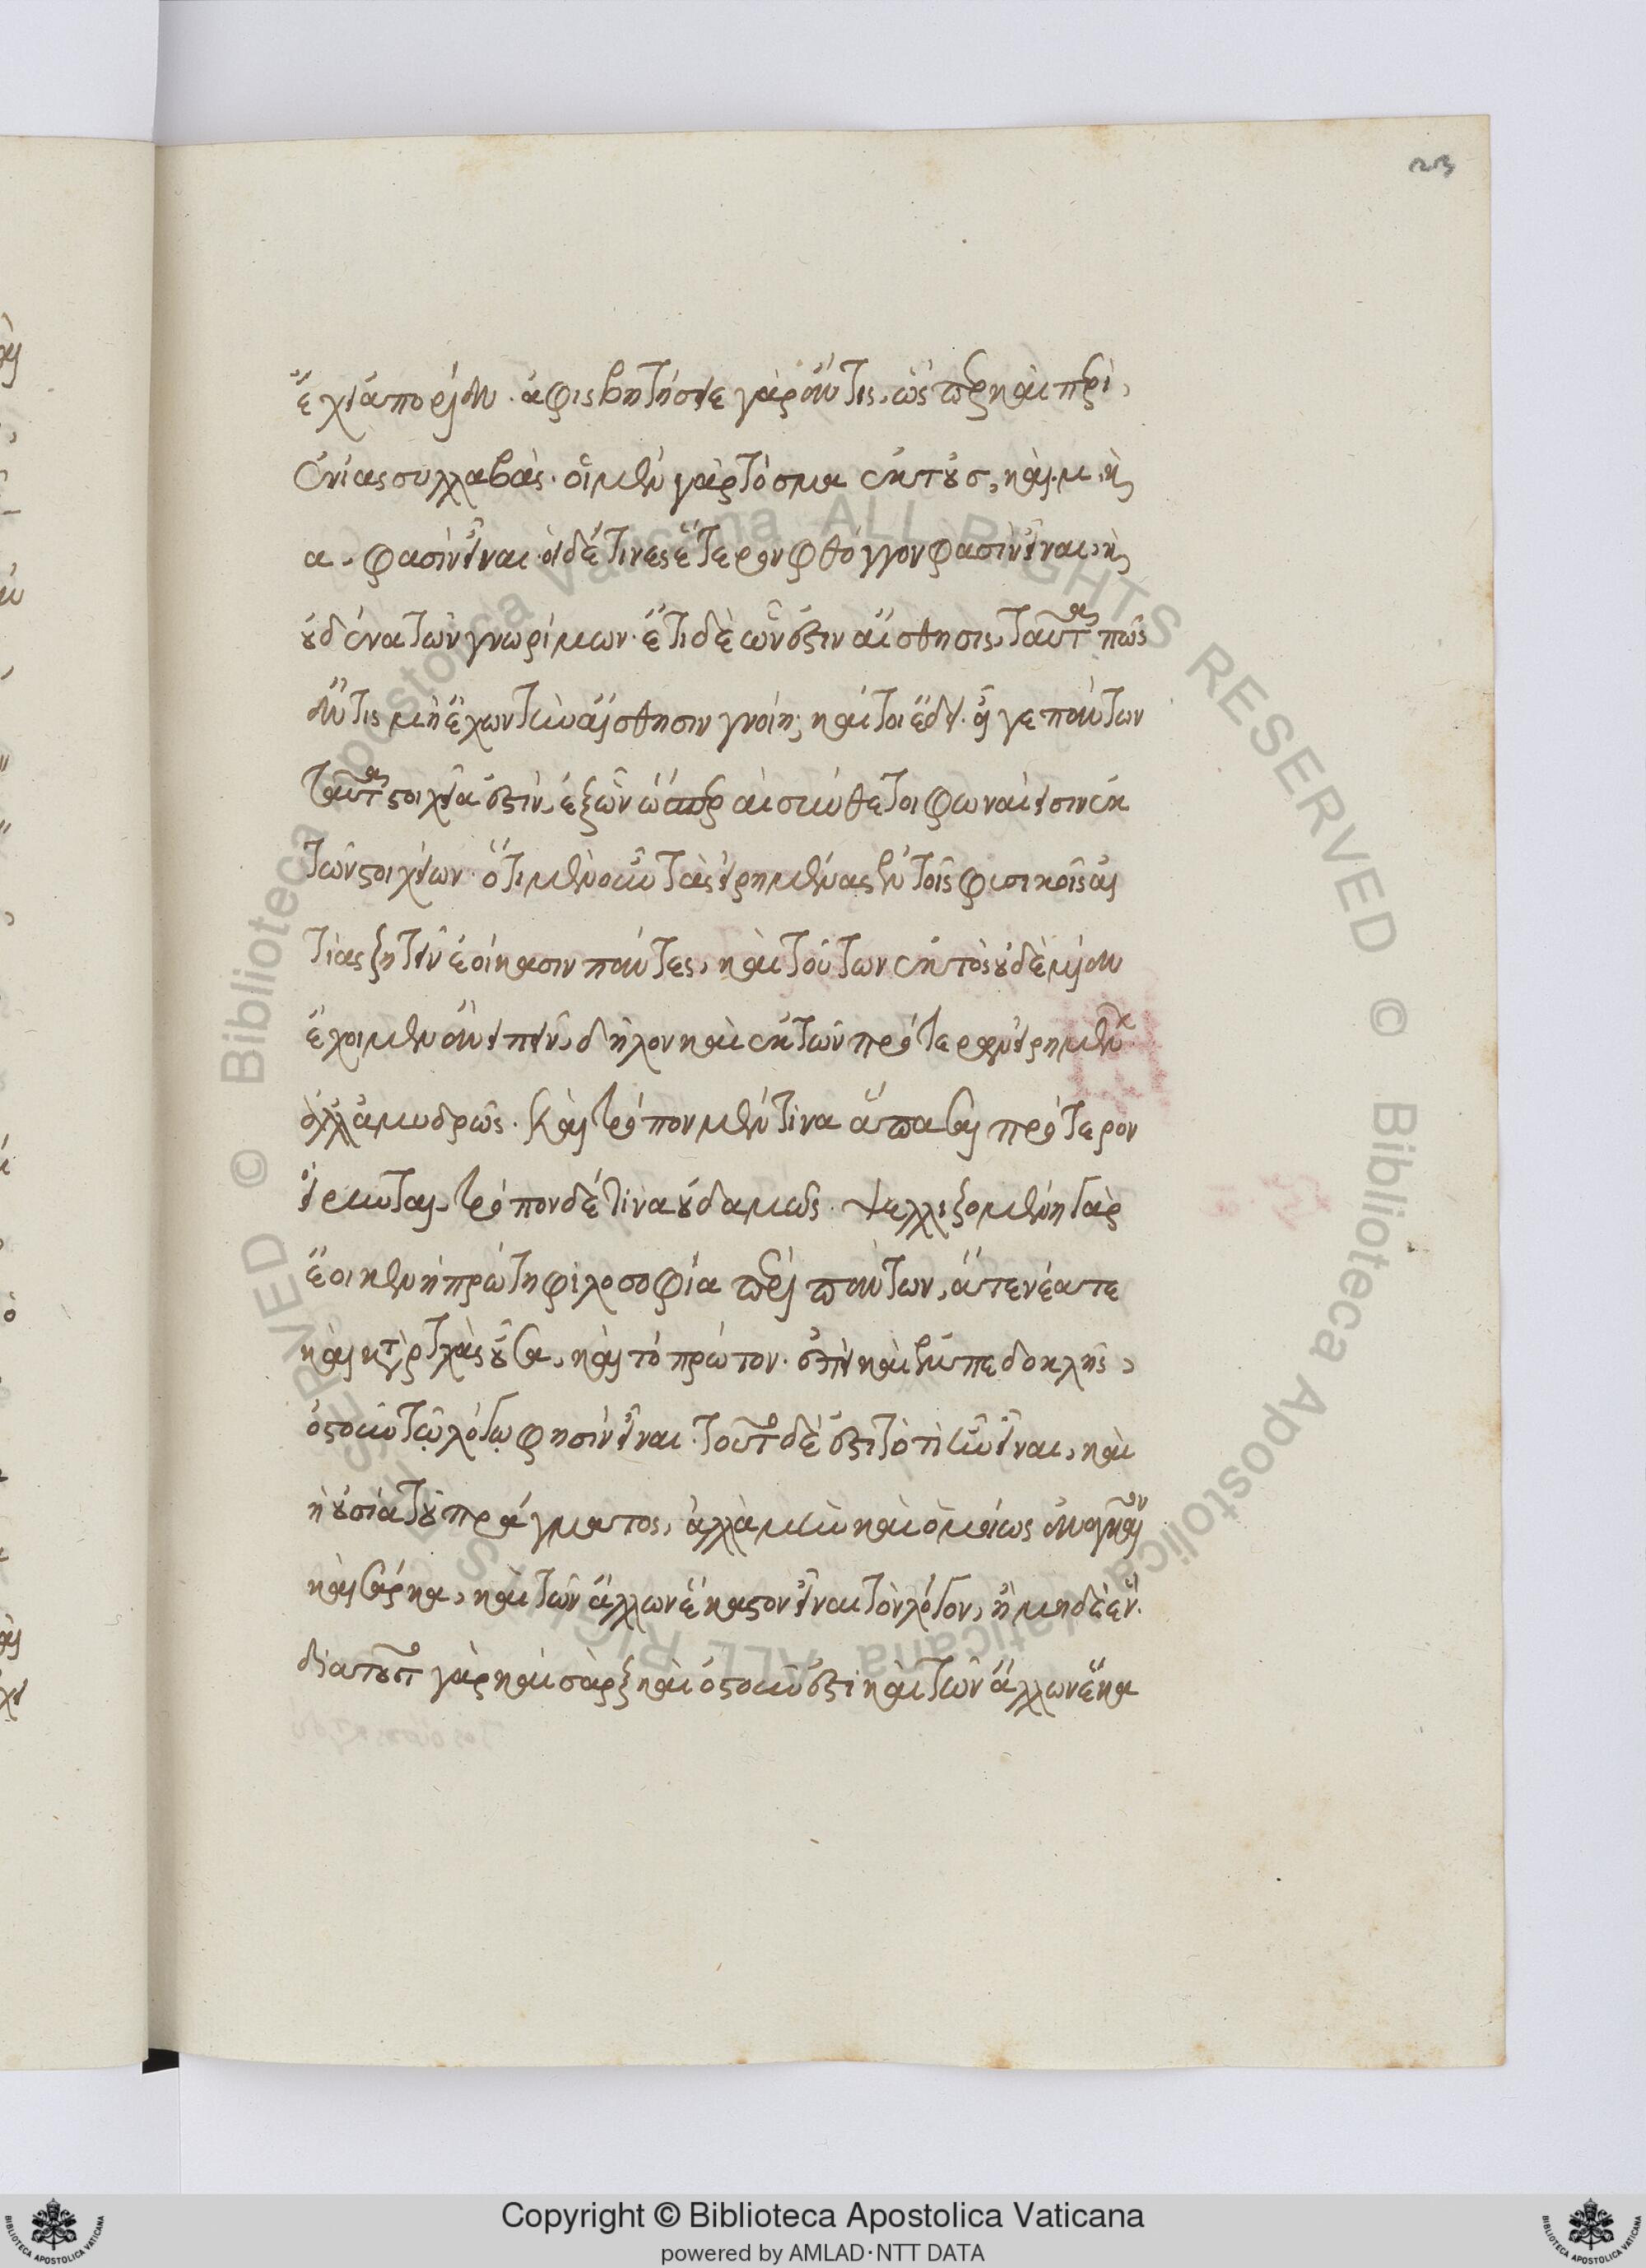 23
ἔχει ἀπορίαν. ἀφισβητήσειε γὰρ ἄν τις, ὥσπερ καὶ περὶ,
ἐνίας συλλαβάς. οἱ μὲν γὰρ τὸ σμα ἐκ τοῦ σ, καὶ. μ. καὶ
α. φασὶν εἶναι. οἱ δέ τινες ἕτερον φθόγγον φασὶν εἶναι, καὶ
οὐδένα τῶν γνωρίμων. ἔτι δὲ ὧν ἐστιν αἴσθησις, ταῦτα πῶς
ἄν τις μὴ ἔχων τὴν αἴσθησιν γνοίη; καίτοι ἔδει. εἴ γε πάντων
ταῦτα στοιχεῖα ἐστὶν, ἐξ ὧν ὥσπερ αἱ σύνθετοι φωναί εἰσιν ἐκ
τῶν στοιχείων. ὅτι μὲν οὖν τὰς εἰρημένας ἐν τοῖς φυσικοῖς αἰ
τίας ζητεῖν ἐοίκασιν πάντες, καὶ τούτων ἐκτὸς οὐδεμίαν
ἔχοιμεν ἂν εἰπεῖν, δῆλον καὶ ἐκ τῶν πρότερον εἰρημένων.
ἀλλ' ἀμυδρῶς. Καὶ τρόπον μέν τινα ἅπασαι πρότερον
εἴρηνται, τρόπον δέ τινα οὐδαμῶς. ψελλιζομένη γὰρ
ἔοικεν ἡ πρώτη φιλοσοφία περὶ πάντων, ἅτε νέα τε
καὶ κατ' ἀρχὰς οὖσα, καὶ τὸ πρῶτον. ἐπεὶ καὶ ἐμπεδοκλῆς,
ὀστοῦν τῷ λόγῳ φησὶν εἶναι. τοῦτο δὲ ἐστὶ τὸ τί ἦν εἶναι, καὶ
ἡ οὐσία τοῦ πράγματος, ἀλλὰ μὴν καὶ ὁμοίως ἀναγκαῖον
καὶ σάρκα, καὶ τῶν ἄλλων ἕκαστον εἶναι τὸν λόγον, ἢ μηδὲ ἕν.
διὰ τοῦτο γὰρ καὶ σὰρξ καὶ ὀστοῦν ἐστὶ καὶ τῶν ἄλλων ἕκα
Copyright © Biblioteca Apostolica Vaticana
powered by AMLAD·NTT DATA